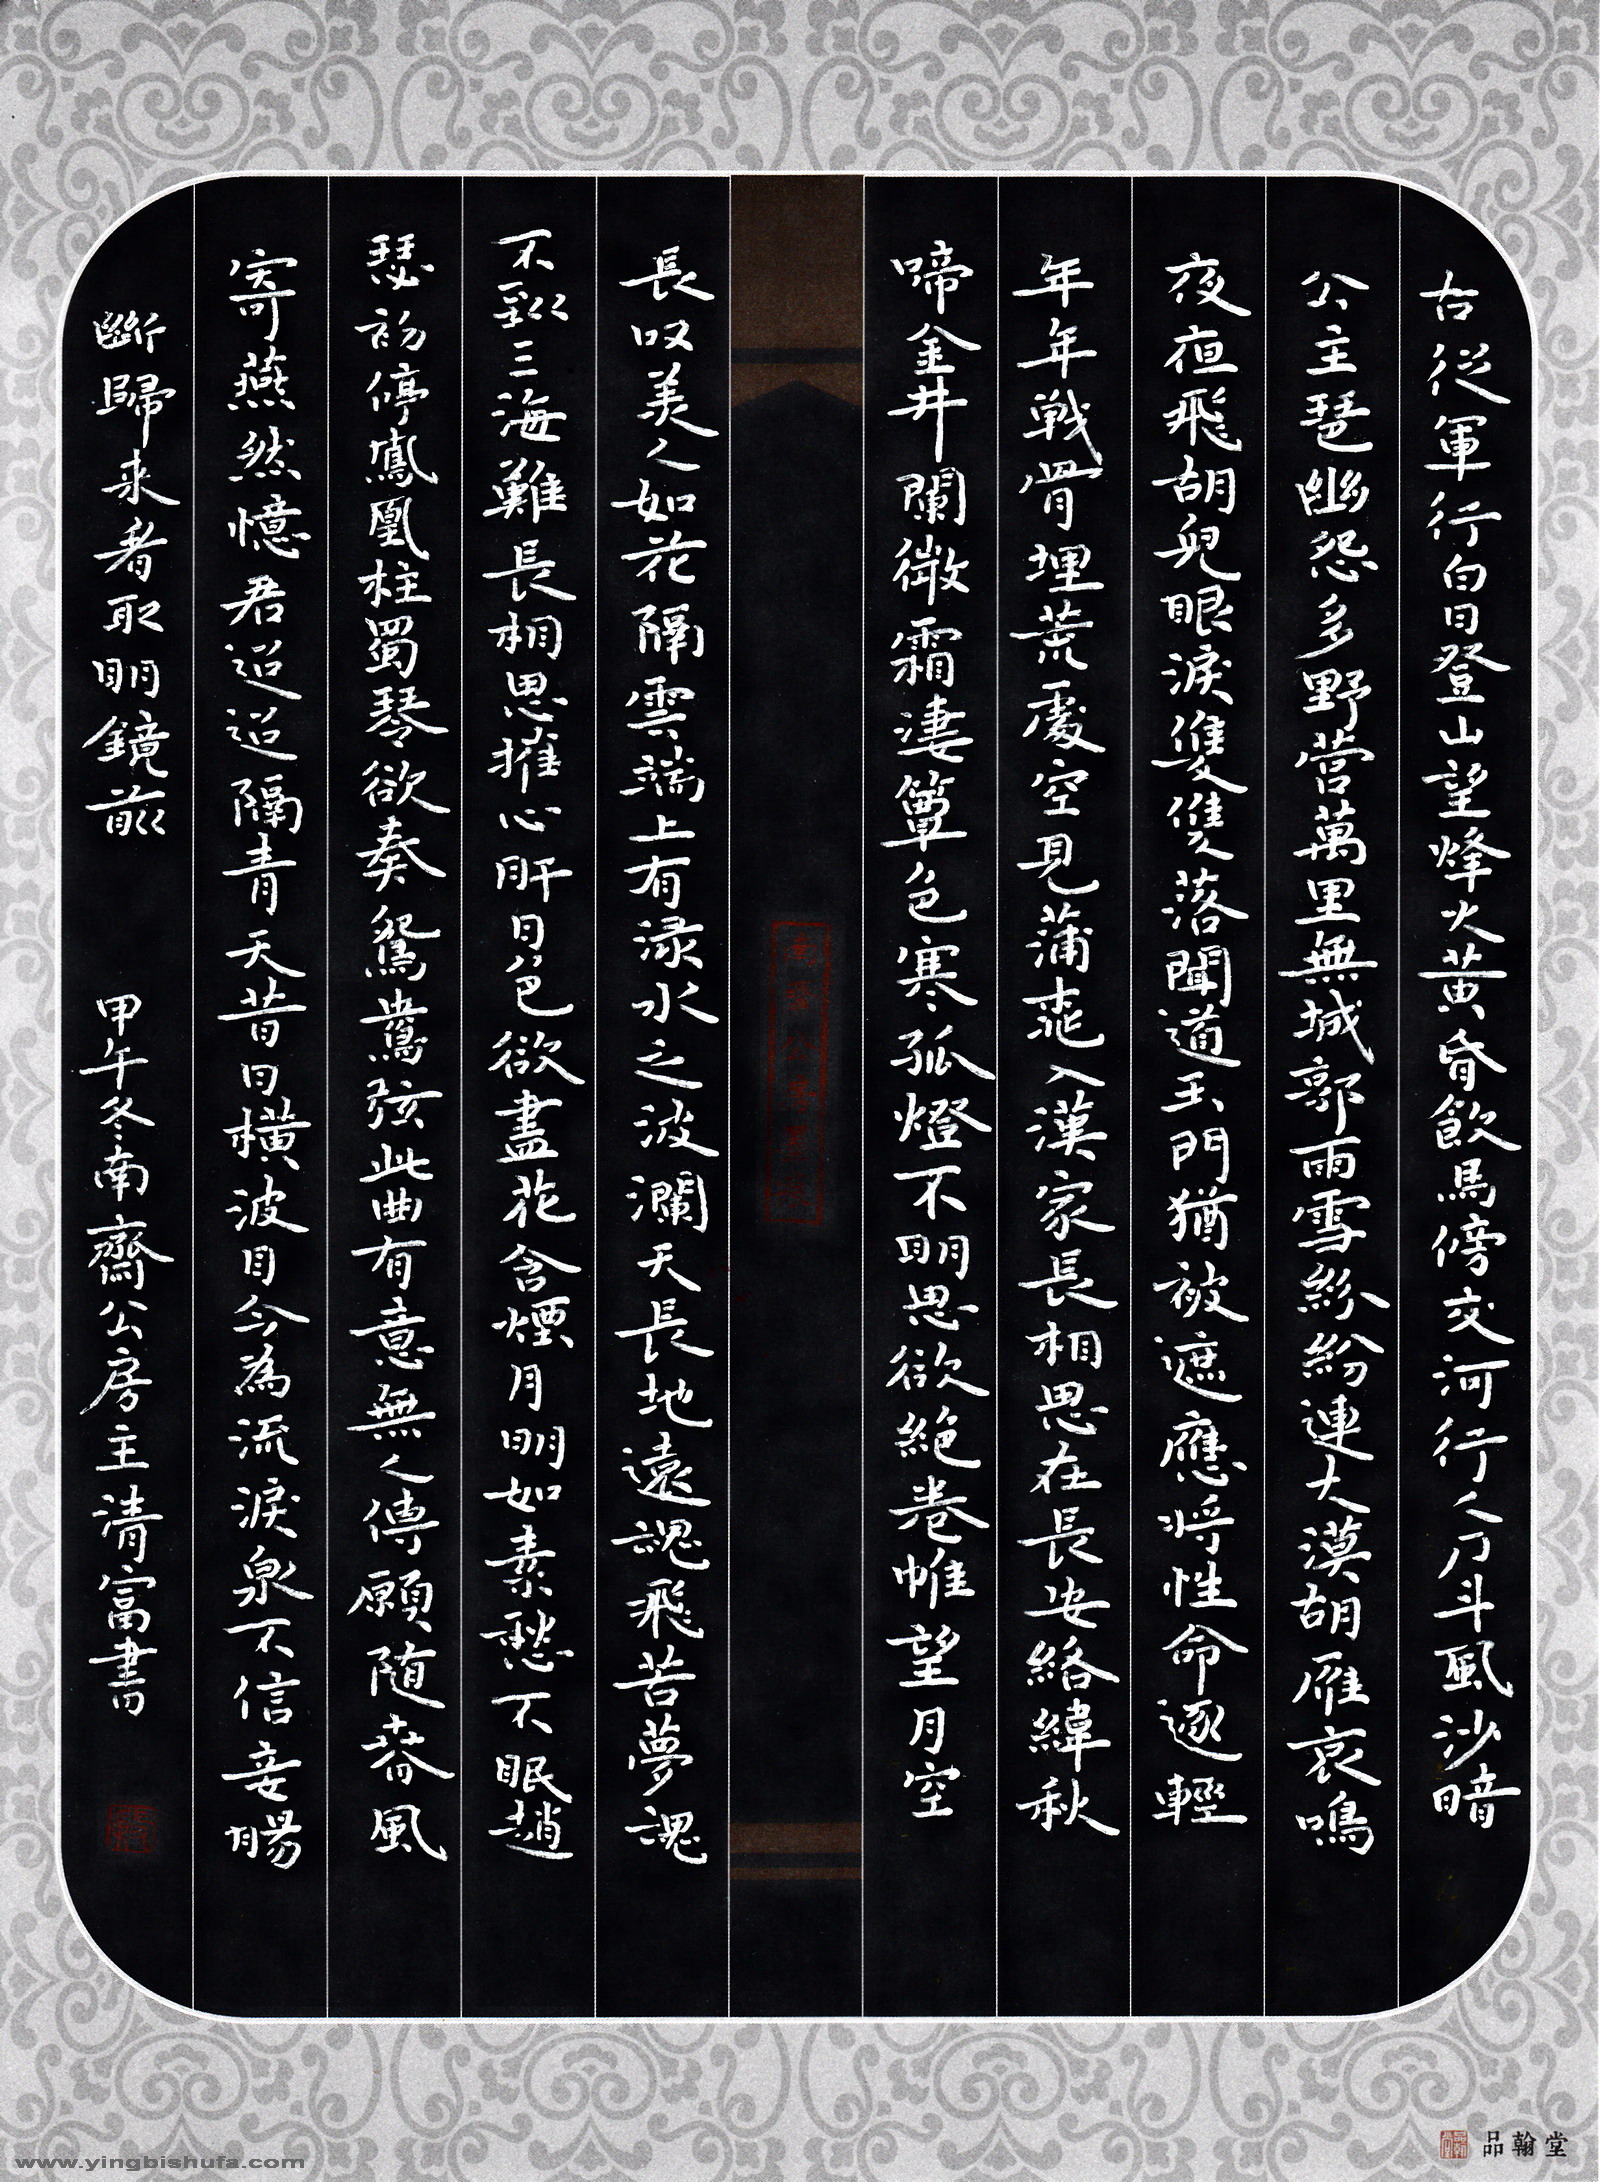 古從軍行白日登山望烽火黃昏飲馬傍交河行人刀斗風沙暗
公主琶幽怨多野營萬里無城郭雨雪紛紛連大漠胡雁哀鳴
夜夜飛胡兒眼淚雙雙落聞道玉門猶被遮應將性命逐輕
年年戦骨埋荒處空見蒲萄入漢家長相思在長安絡緯秋
啼金井闌微霜淒簟色寒孤燈不明思欲絕卷帷望月空
長叹美人如花隔雲端上有淥水之波瀾天長地遠魂飛苦夢魂
不到三海難長相思摧心肝日色欲盡花含煙月明如素愁不眠趙
瑟初停鳳凰柱蜀琴欲奏鴛鴦弦此曲有意無人傳願随春風
寄燕然憶君迢迢隔青天昔日橫波目今為流淚泉不信妾腸
斷歸来看取明鏡前 甲午冬南齋公房主清富書
品翰堂
www.yingbishufa.com